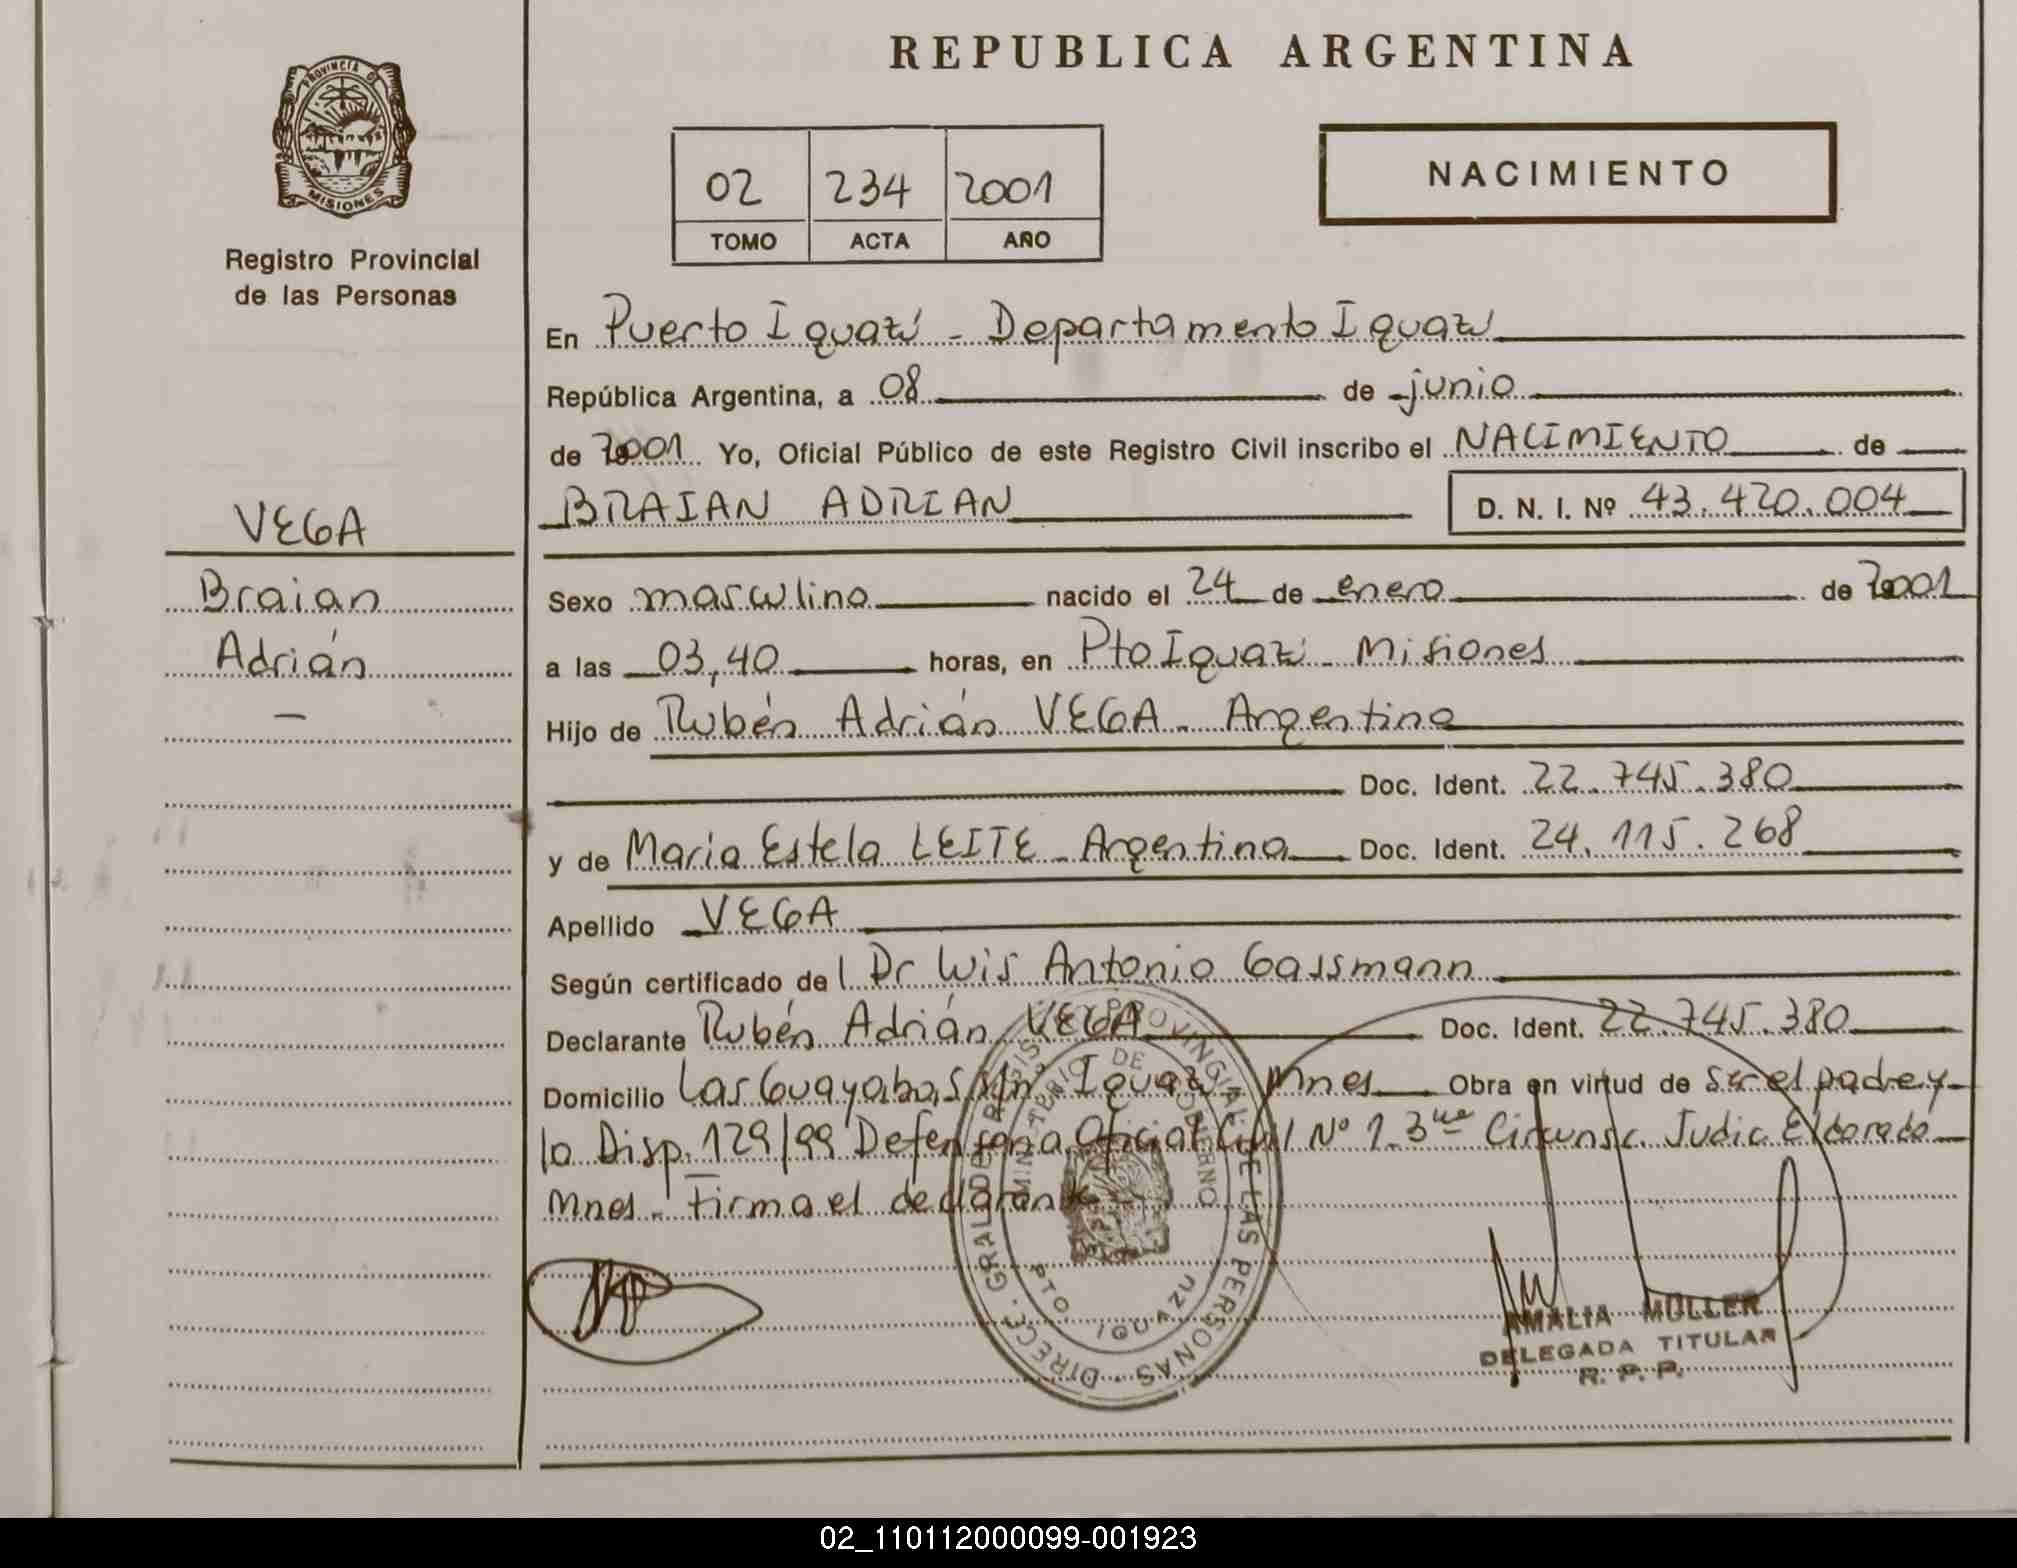 REPUBLICA ARGENTINA
PROVINCIA DE
MISIONES
Registro Provincial
de las Personas
02 234 2001
TOMO ACTA AÑO
NACIMIENTO
En Puerto Iguazú - Departamento Iguazú
República Argentina, a 08 de junio
de 2001 Yo, Oficial Público de este Registro Civil inscribo el NACIMIENTO de
BRAIAN ADRIAN D. N. I. Nº 43.420.004
VEGA
Braian
Adrián
Sexo masculino nacido el 24 de enero de 2001
a las 03,40 horas, en Pto Iguazú - Misiones
Hijo de Rubén Adrián VEGA - Argentina
Doc. Ident. 22.745.380
y de Maria Estela LEITE - Argentina Doc. Ident. 24.115.268
Apellido VEGA
Según certificado de l Dr Luis Antonio Gassmann
Declarante Rubén Adrián VEGA Doc. Ident. 22.745.380
Domicilio Las Guayabas S/Nº Iguazú Mnes Obra en virtud de ser el padre y
la Disp. 129/99 Defensoria Oficial Civil Nº 1 - 3era Circunsc. Judic Eldorado
Mnes - Firma el declarante
DIRECC. GRAL. DE REGIST. PROVINCIAL DE LAS PERSONAS
MINISTERIO DE GOBIERNO
PTO IGUAZU
AMALIA MULLER
DELEGADA TITULAR
R. P. P.
02_110112000099-001923